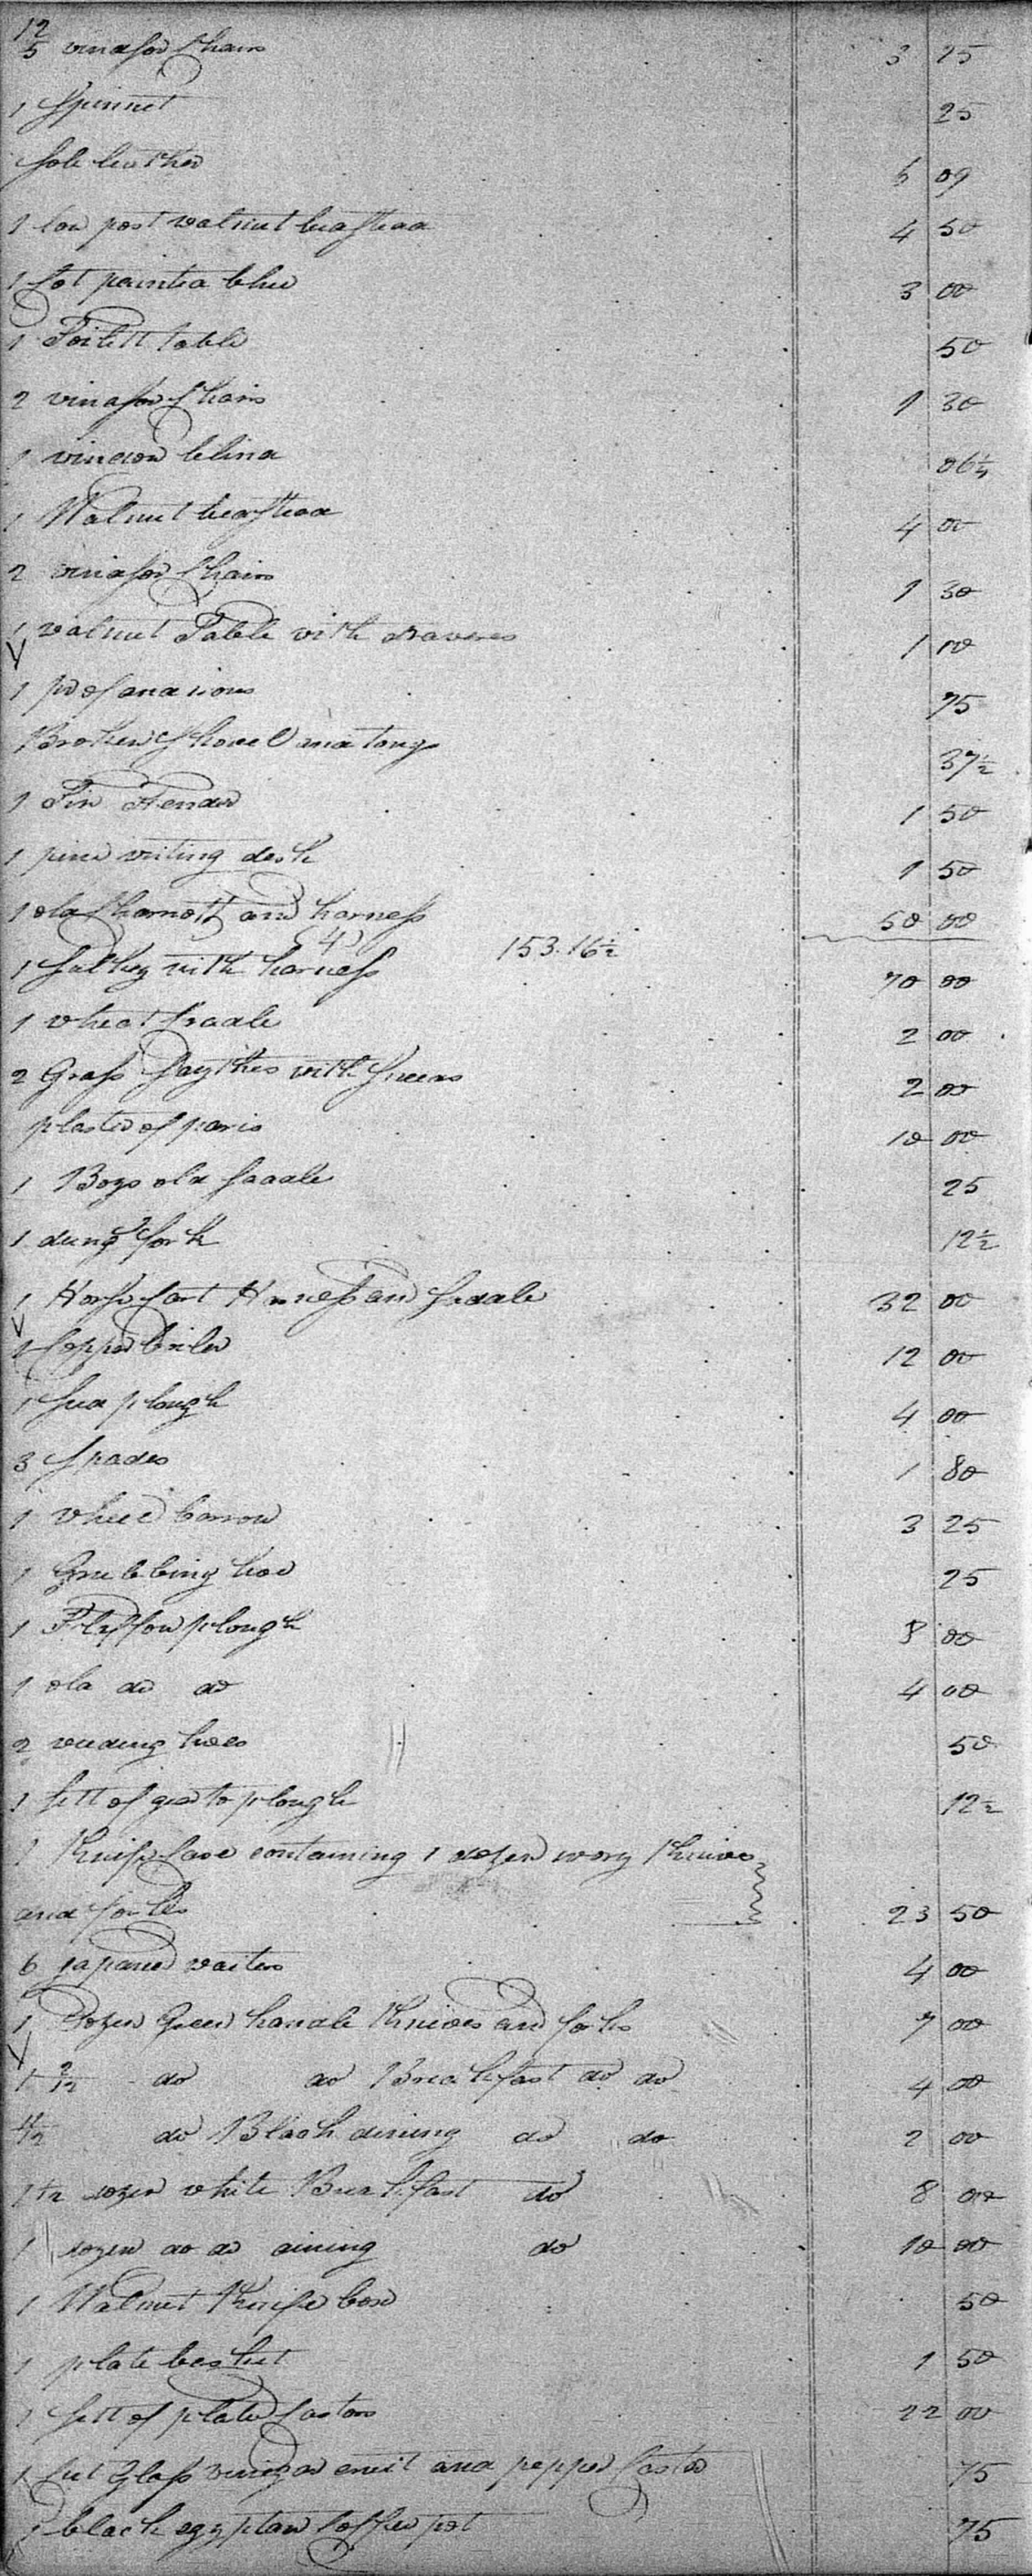 12
5 vindsor Chairs 3 25
1 Spinnet 25
Sole leather 5 09
1 low post walnut beadstead 4 50
1 Cot painted blue 3 00
1 Toilett table 50
2 vindsor Chairs 1 30
1 vindow blind 06 1/4
1 Walnut beadstead 4 00
2 vindsor Chairs 1 30
1 walnut Table with drawers 1 00
1 pr of and irons 75
Broken Shovel and tongs 37 1/2
1 Tin Fender 1 50
1 pine writing desk 1 50
1 old Charriott and harness 50 00
1 Sulkey with harness 153.16 1/2 70 00
1 wheat Cradle 2 00
2 Grass Scythes with Sneads 2 00
plaster of paris 10 00
1 Boys old Saddle 25
1 dung fork 12 1/2
1 Horse Cart Harness and Saddle 32 00
1 Copper boiler 12 00
1 Seed plough 4 00
3 Spades 1 80
1 wheel barrow 3 25
1 Grubbing hoe 25
1 plough 8 00
1 old do do 4 00
2 weeding hoes 50
1 Sett of gear to plough 12 1/2
1 Knife Case containing 1 dozen ivory Knives
and forks 23 50
6 japaned waiters 4 00
1 Dozen Green handle Knives and forks 7 00
1 2/12 do do Breakfast do do 4 00
4/12 do Black dining do do 2 00
1 1/2 dozen white Breakfast do 8 00
1 dozen do do dining do 10 00
1 Walnut Knife box 50
1 plate basket 1 50
1 Sett of plated Castors 22 00
1 Cut Glass vinegar cruit and pepper Castor 75
1 black egyptian Coffee pot 75